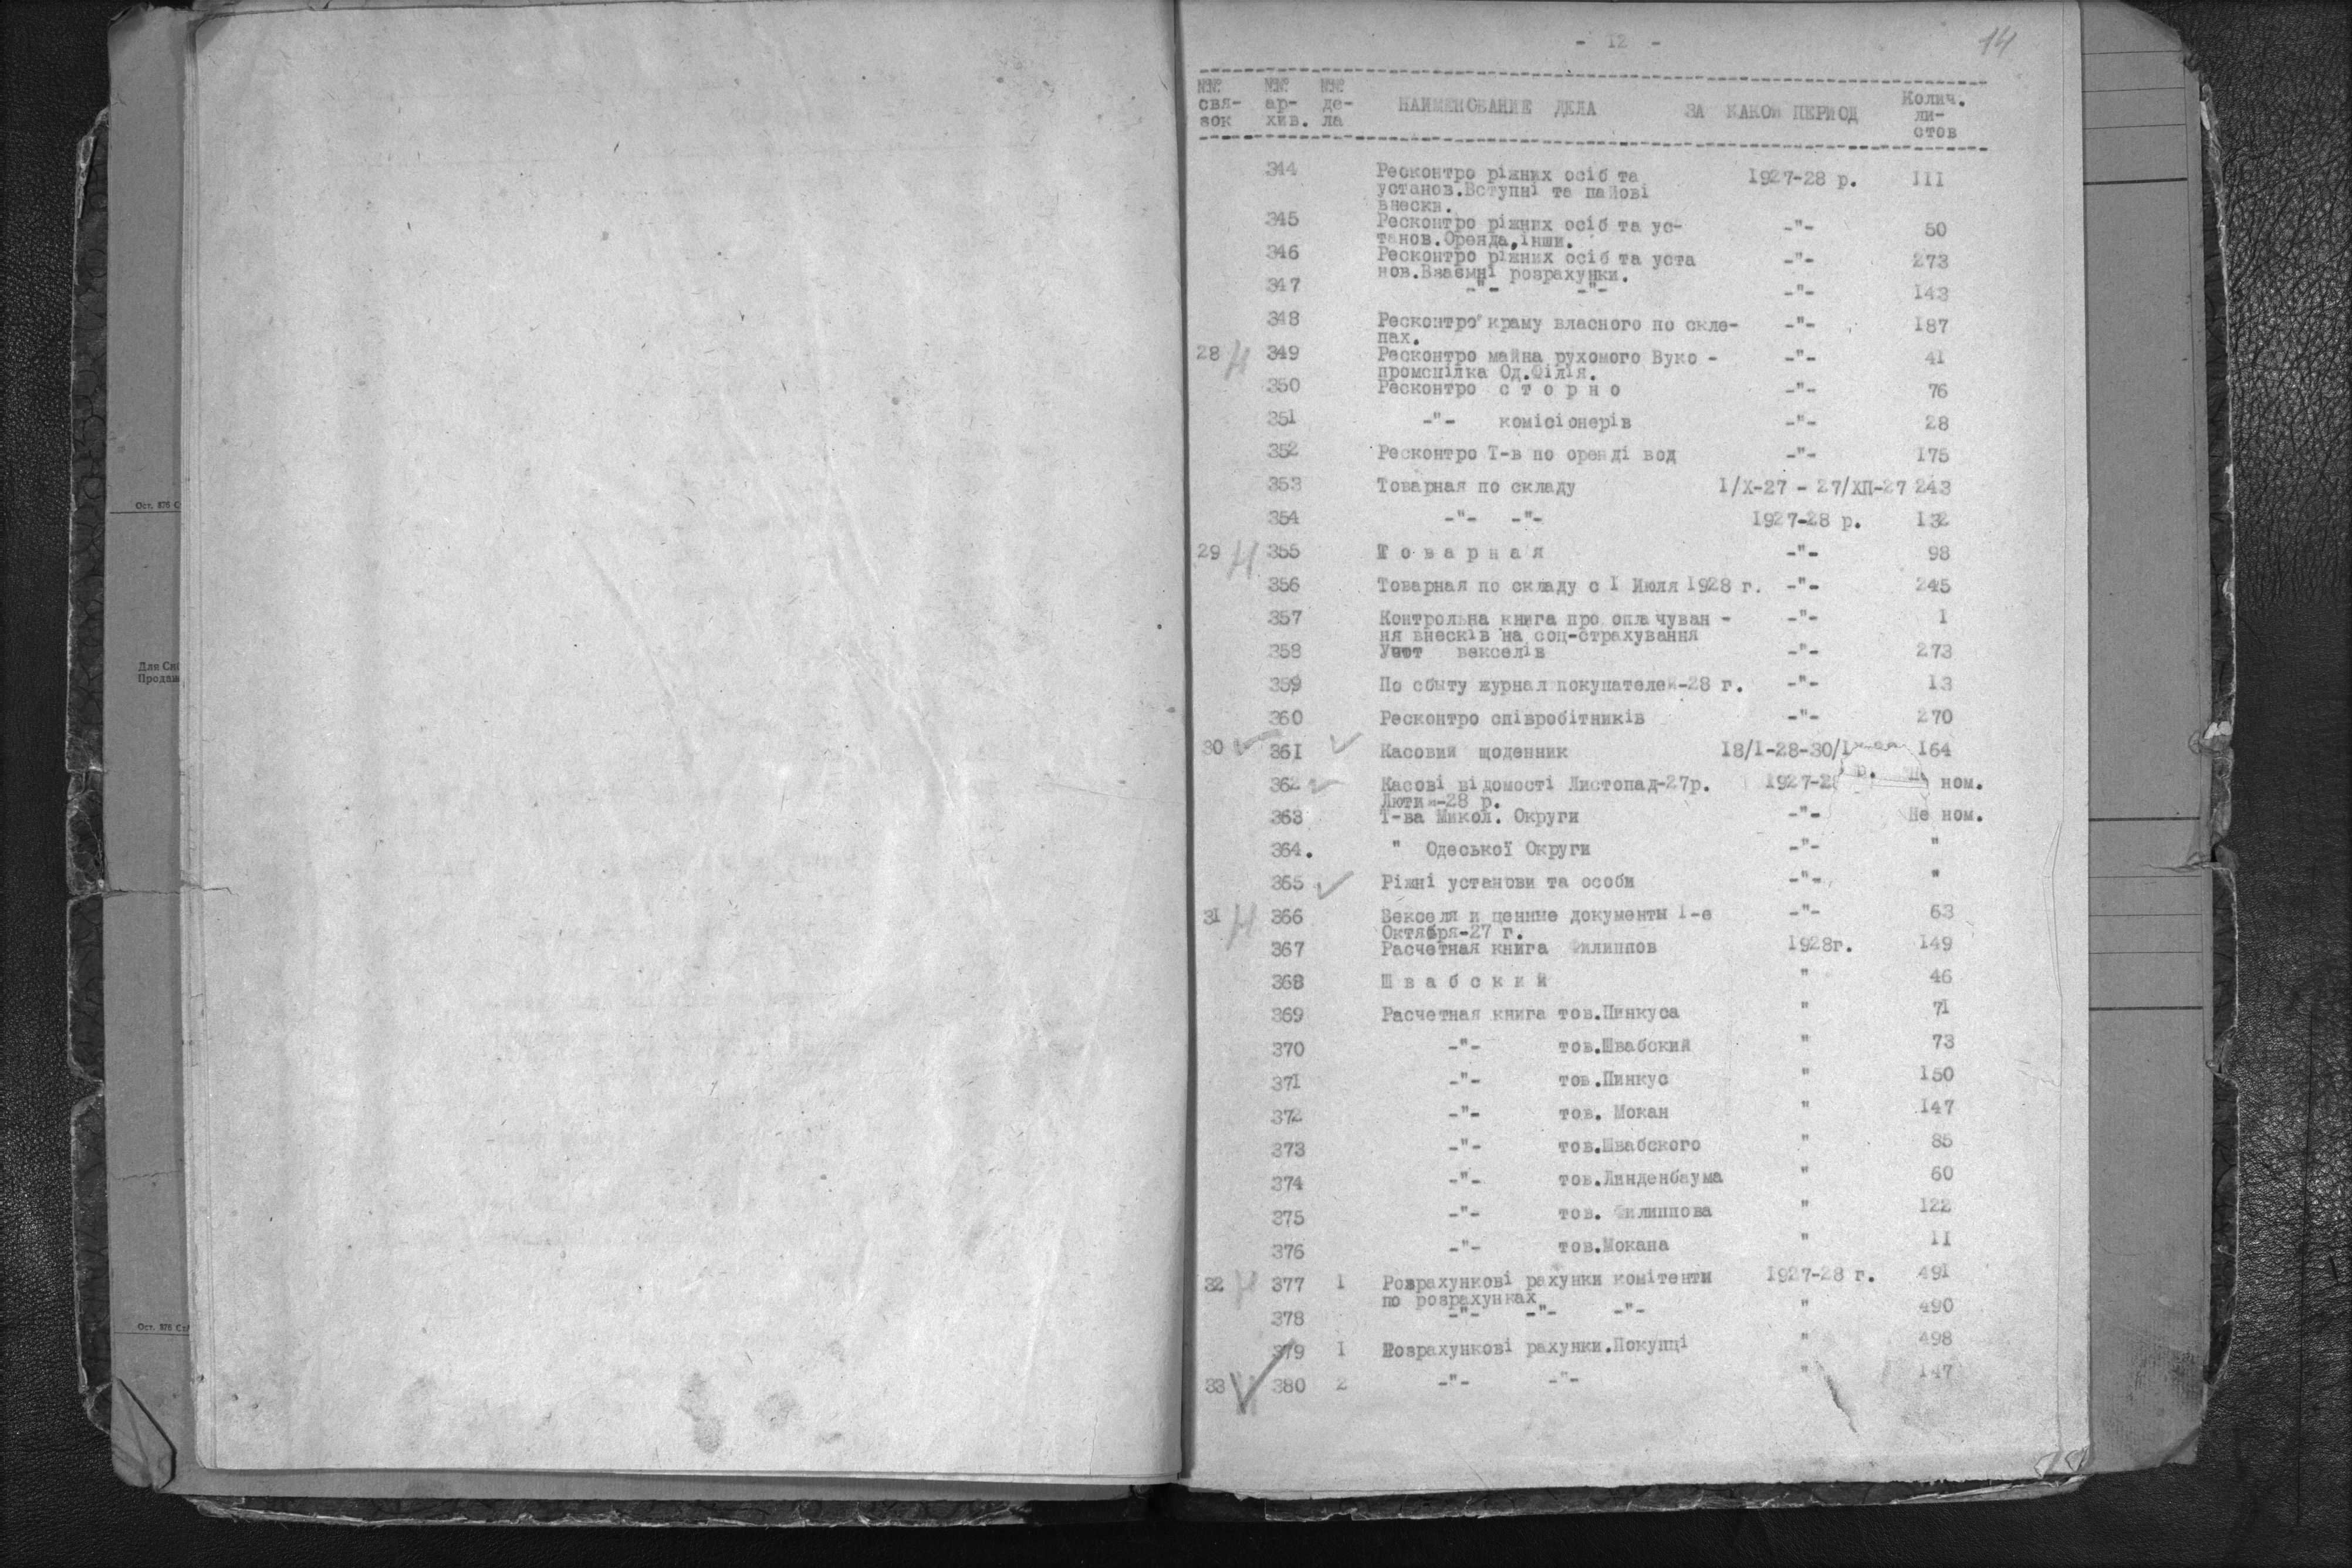 - 12 -
14
№№ №№ №№
свя- ар- де- НАИМЕНОВАНИЕ ДЕЛА ЗА КАКОЙ ПЕРИОД Колич.
зок хив. ла ли-
стов
344 Ресконтро ріжних осіб та 1927-28 р. 111
установ.Вступні та пайові
внески.
345 Ресконтро ріжних осіб та ус- -"- 50
танов.Оренда,інши.
346 Ресконтро ріжних осіб та уста -"- 273
нов.Взаємні розрахунки.
347 -"- -"- -"- 143
348 Ресконтро краму власного по скле- -"- 187
пах.
28 Н 349 Ресконтро майна рухомого Вуко - -"- 41
промспілка Од.Філія.
350 Ресконтро с т о р н о -"- 76
351 -"- комісіонерів -"- 28
352 Ресконтро Т-в по оренді вод -"- 175
353 Товарная по складу 1/Х-27 - 27/ХП-27 243
354 -"- -"- 1927-28 р. 132
29 Н 355 Т о в а р н а я -"- 98
356 Товарная по складу с 1 Июля 1928 г. -"- 245
357 Контрольна книга про оплачуван - -"- 1
ня внесків на соц-страхування
358 Учот векселів -"- 273
359 По сбыту журнал покупателей-28 г. -"- 13
360 Ресконтро співробітників -"- 270
30 361 Касовий щоденник 18/1-28-30/ 164
362 Касові відомості Листопад-27р. 1927-2 р. ном.
Лютий-28 р.
363 Т-ва Микол. Округи -"- Не ном.
364. " Одеської Округи -"- "
365 Ріжні установи та особи -"- "
31 Н 366 Векселя и ценные документы 1-е -"- 63
Октября-27 г.
367 Расчетная книга Филиппов 1928г. 149
368 Ш в а б с к и й " 46
369 Расчетная книга тов.Пинкуса " 71
370 -"- тов.Швабский " 73
371 -"- тов.Пинкус " 150
372 -"- тов. Мокан " 147
373 -"- тов.Швабского " 85
374 -"- тов.Линденбаума " 60
375 -"- тов. Филиппова " 122
376 -"- тов.Мокана " 11
32 Н 377 1 Розрахункові рахунки комітенти 1927-28 г. 491
по розрахунках
378 -"- -"- -"- " 490
379 1 Розрахункові рахунки.Покупці " 498
33 380 2 -"- -"- " 147
Ост. 876
Для
Продаж
Ост. 876